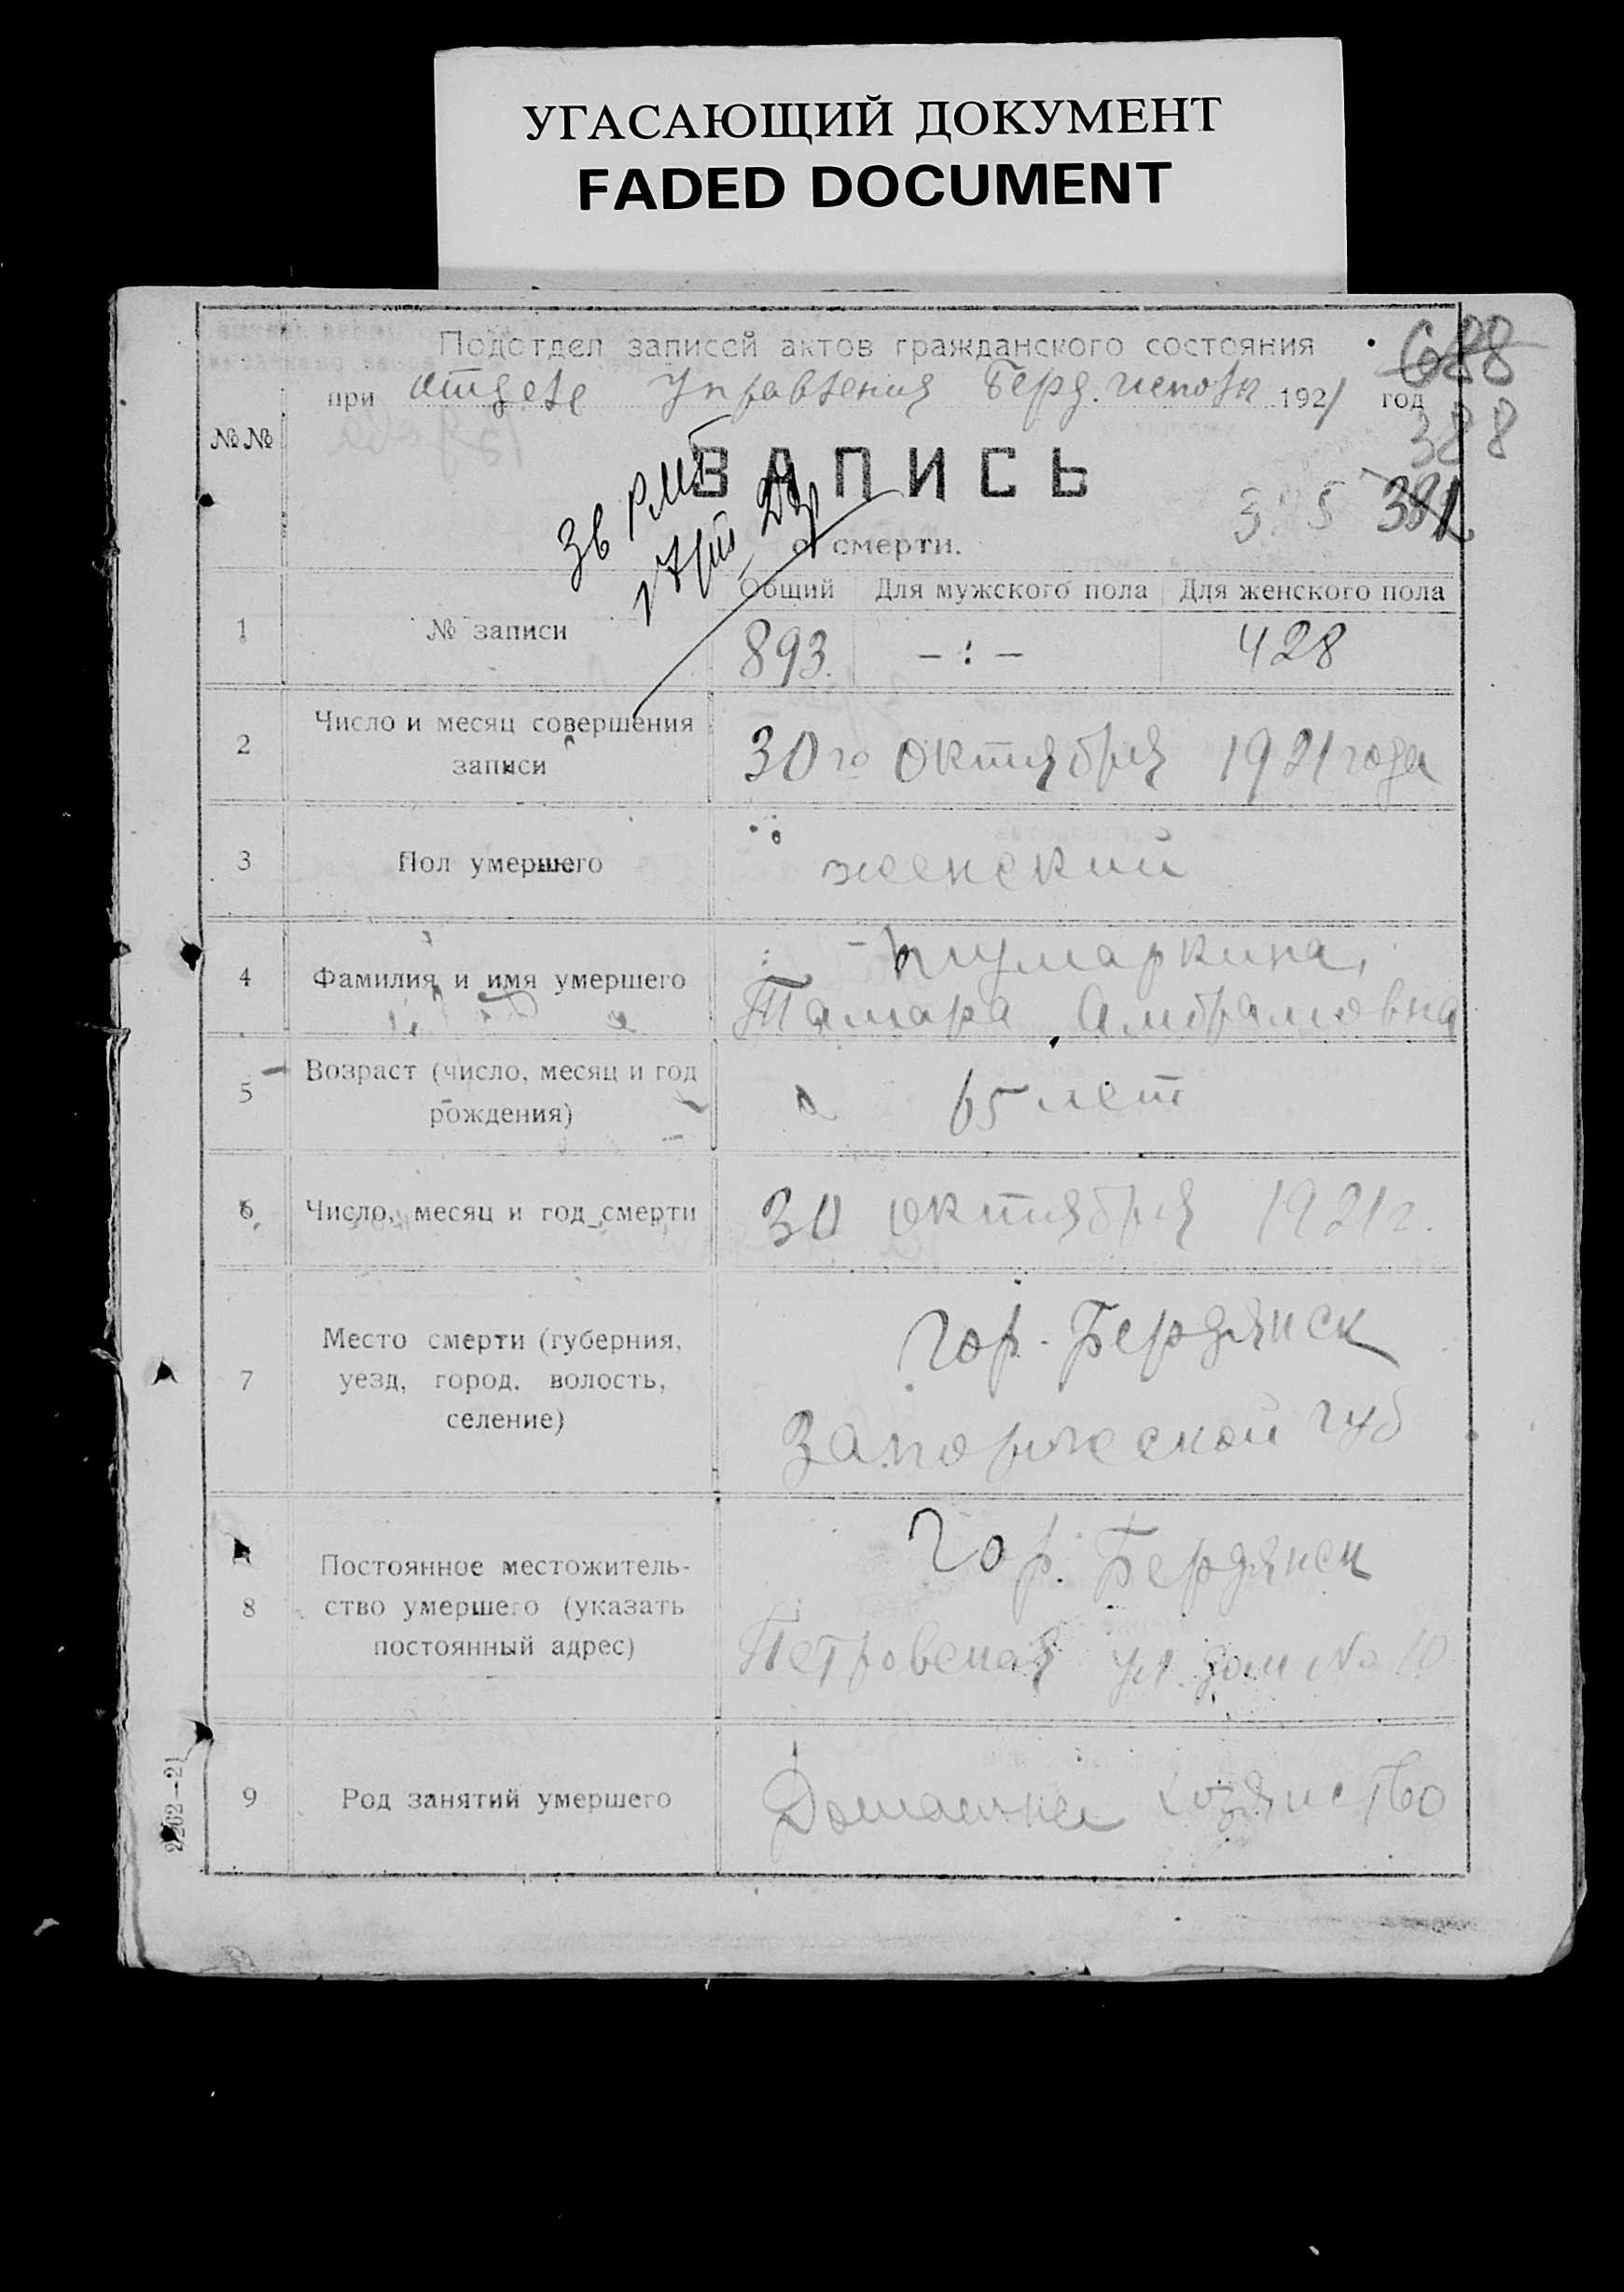 УГАСАЮЩИЙ ДОКУМЕНТ
FADED DOCUMENT
Подотдел записей актов гражданского состояния
688
при отделе Управления Берд. исполк 1921 год
388
№№
ЗАПИСЬ
391
о смерти.
Общий Для мужского пола Для женского пола
1 № записи 893. – : – 428
2 Число и месяц совершения
записи
30го октября 1921 года
3 Пол умершего женский
4 Фамилия и имя умершего
Тамара Амбрамовна
5 Возраст (число, месяц и год
рождения)
65 лет
6 Число, месяц и год смерти 30 октября 1921 г.
7 Место смерти (губерния,
уезд, город, волость,
селение)
Гор. Бердянск
Запорожской губ
8 Постоянное местожитель-
ство умершего (указать
постоянный адрес)
Гор. Бердянск
Петровская ул. дом № 10
9 Род занятий умершего Домашнее хозяиство
2262—21